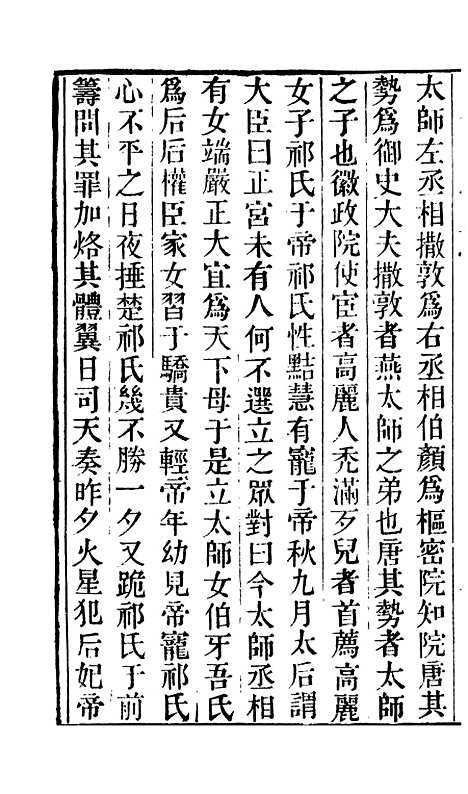 太師左丞相撒敦爲右丞相伯顏爲樞密院知院唐其
勢爲御史大夫撒敦者燕太師之弟也唐其勢者太師
之子也徽政院使宦者高麗人禿滿歹兒者首薦高麗
女子祁氏于帝祁氏性黠慧有寵于帝秋九月太后謂
大臣曰正宮未有人何不選立之眾對曰今太師丞相
有女端嚴正大宜爲天下母于是立太師女伯牙吾氏
爲后后權臣家女習于驕貴又輕帝年幼見帝寵祁氏
心不平之日夜捶楚祁氏幾不勝一夕又跪祁氏于前
籌問其罪加烙其體翼日司天奏昨夕火星犯后妃帝